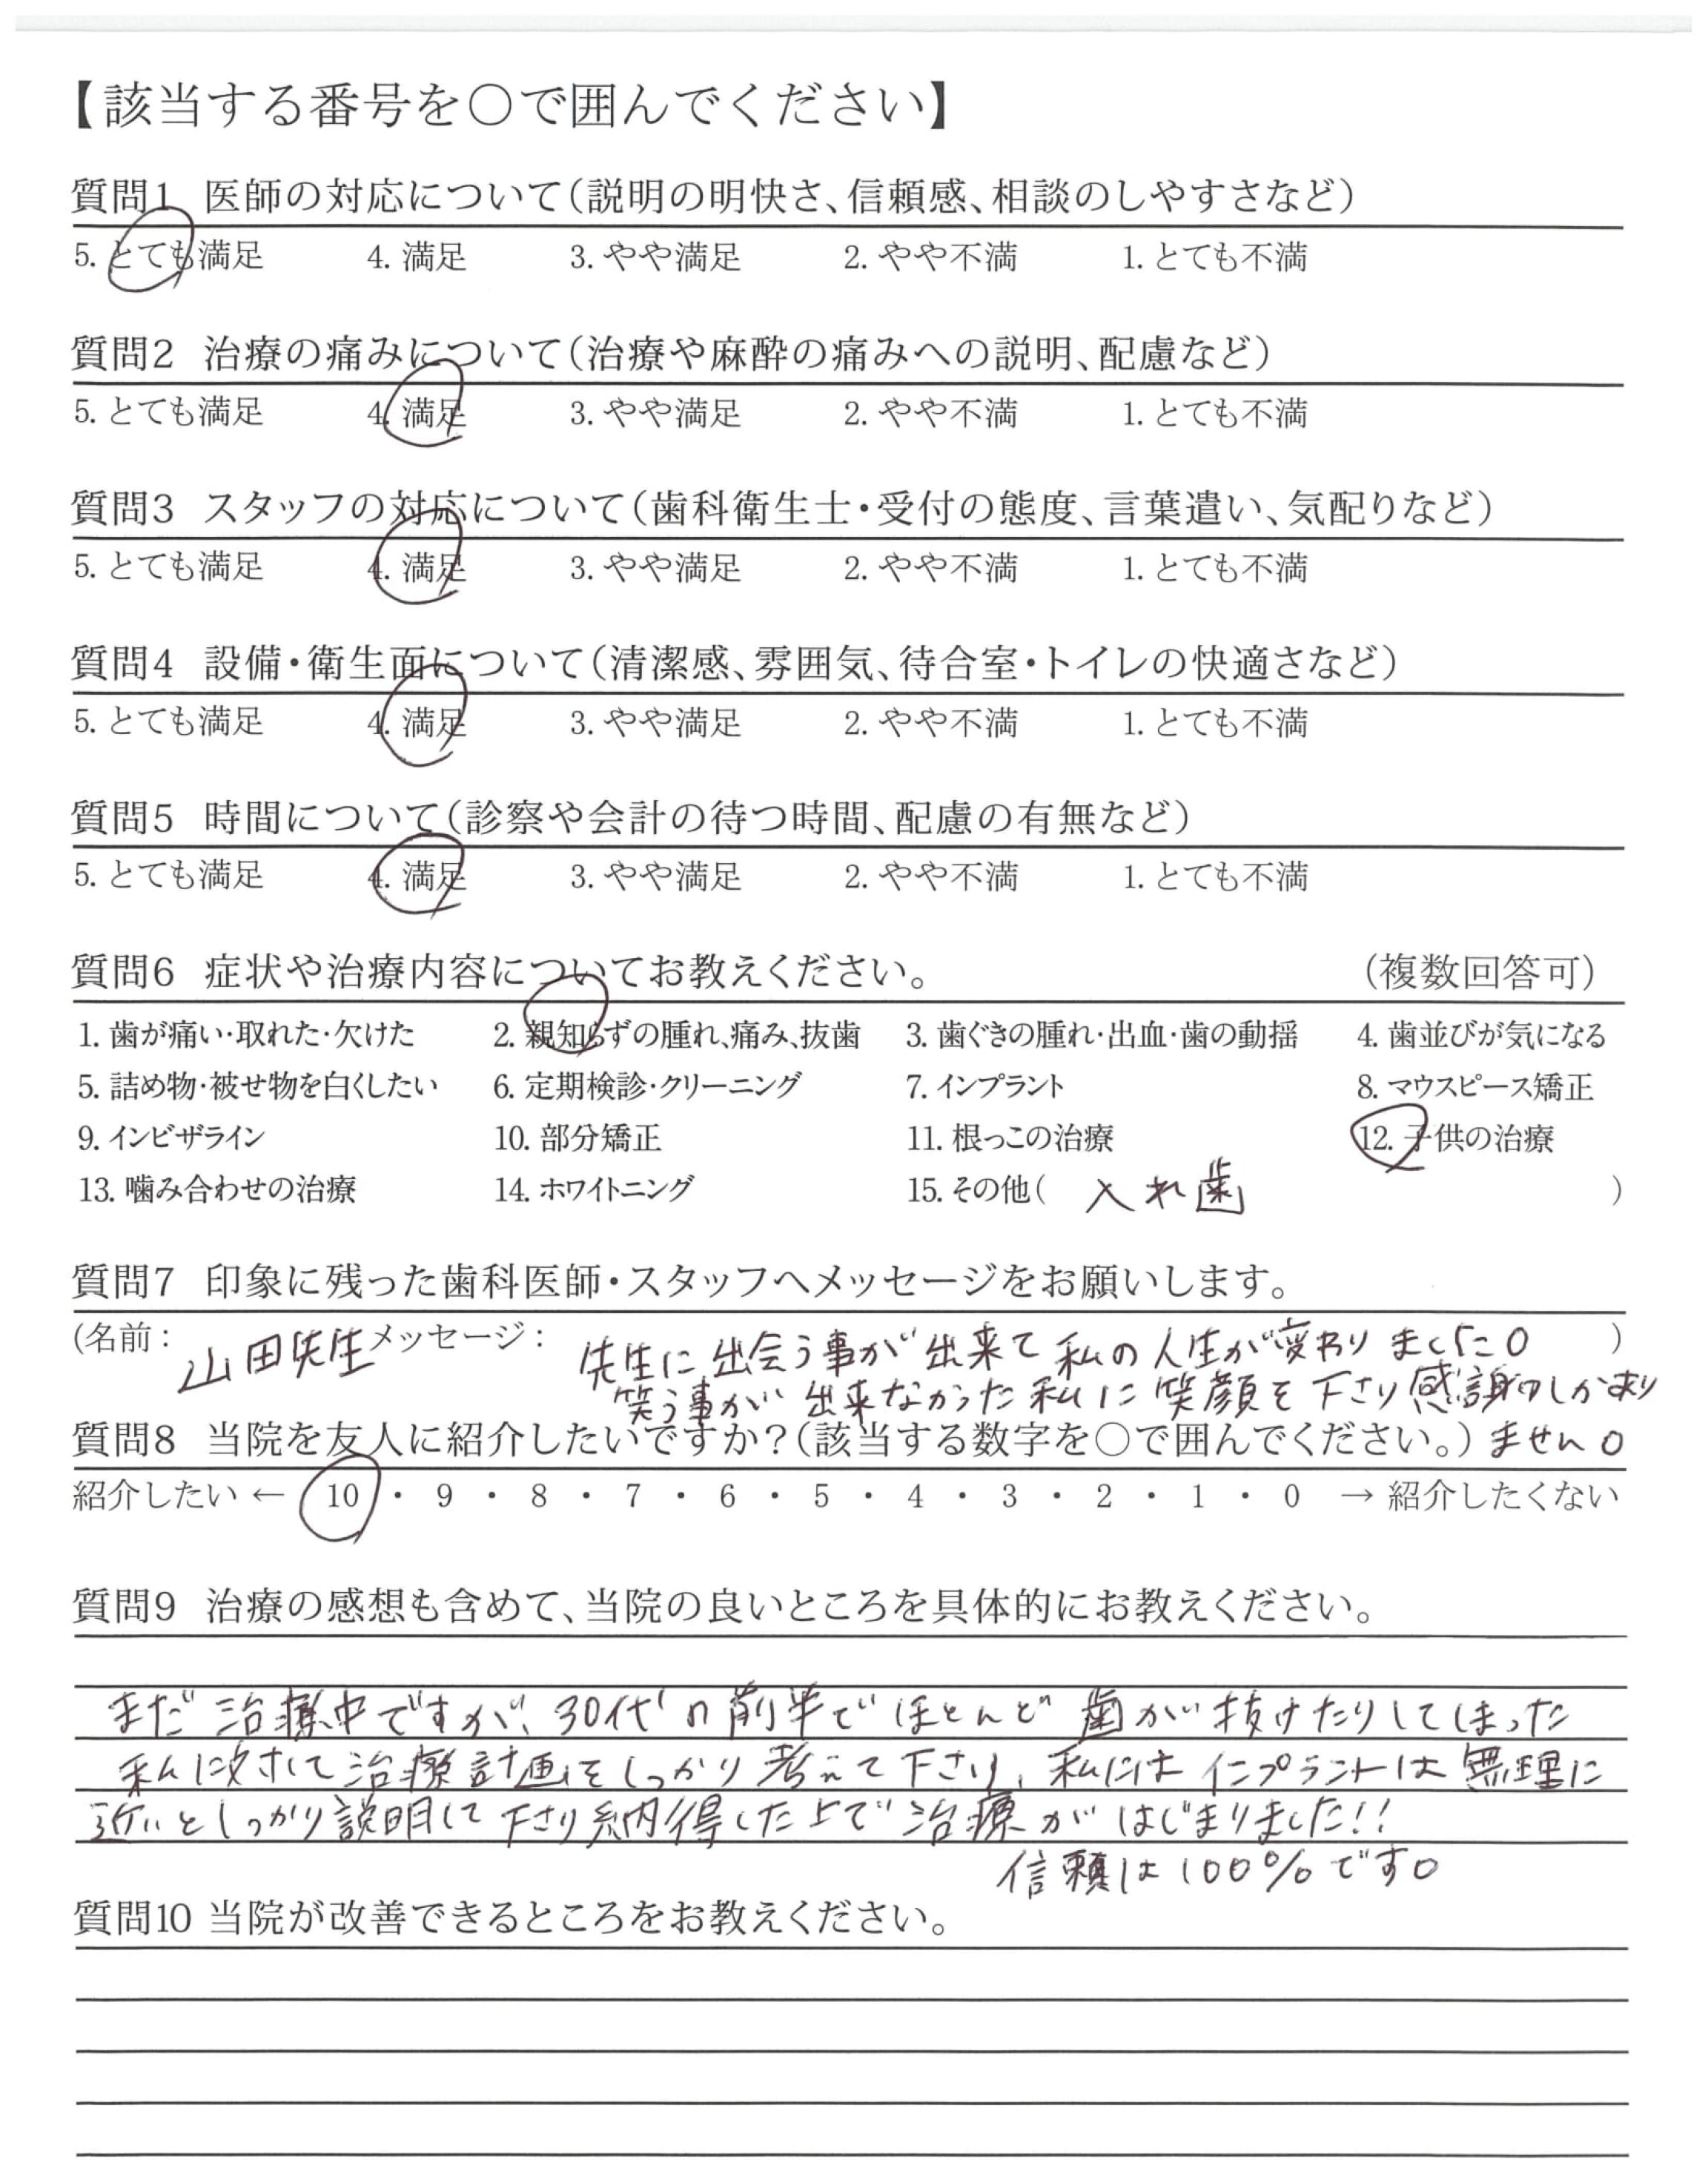 【該当する番号を〇で囲んでください】
質問1 医師の対応について(説明の明快さ、信頼感、相談のしやすさなど)
5. とても満足 4. 満足 3. やや満足 2. やや不満 1. とても不満
質問2 治療の痛みについて(治療や麻酔の痛みへの説明、配慮など)
5. とても満足 4. 満足 3. やや満足 2. やや不満 1. とても不満
質問3 スタッフの対応について(歯科衛生士・受付の態度、言葉遣い、気配りなど)
5. とても満足 4. 満足 3. やや満足 2. やや不満 1. とても不満
質問4 設備・衛生面について(清潔感、雰囲気、待合室・トイレの快適さなど)
5. とても満足 4. 満足 3. やや満足 2. やや不満 1. とても不満
質問5 時間について(診察や会計の待つ時間、配慮の有無など)
5. とても満足 4. 満足 3. やや満足 2. やや不満 1. とても不満
質問6 症状や治療内容についてお教えください。 (複数回答可)
1. 歯が痛い・取れた・欠けた 2. 親知らずの腫れ、痛み、抜歯 3. 歯ぐきの腫れ・出血・歯の動揺 4. 歯並びが気になる
5. 詰め物・被せ物を白くしたい 6. 定期検診・クリーニング 7. インプラント 8. マウスピース矯正
9. インビザライン 10. 部分矯正 11. 根っこの治療 12. 子供の治療
13. 噛み合わせの治療 14. ホワイトニング 15. その他( 入れ歯 )
質問7 印象に残った歯科医師・スタッフへメッセージをお願いします。
(名前: 山田先生 メッセージ: 先生に出会う事が出来て私の人生が変わりました。 )
笑う事が出来なかった私に笑顔を下さり感謝のしかあり
ません。
質問8 当院を友人に紹介したいですか?(該当する数字を〇で囲んでください。)
紹介したい ← 10 ・ 9 ・ 8 ・ 7 ・ 6 ・ 5 ・ 4 ・ 3 ・ 2 ・ 1 ・ 0 → 紹介したくない
質問9 治療の感想も含めて、当院の良いところを具体的にお教えください。
まだ治療中ですが、30代の前半でほとんど歯が抜けたりしてしまった
私に対して治療計画をしっかり考えて下さり、私にはインプラントは無理に
近いとしっかり説明して下さり納得した上で治療がはじまりました!!
信頼は100%です。
質問10 当院が改善できるところをお教えください。